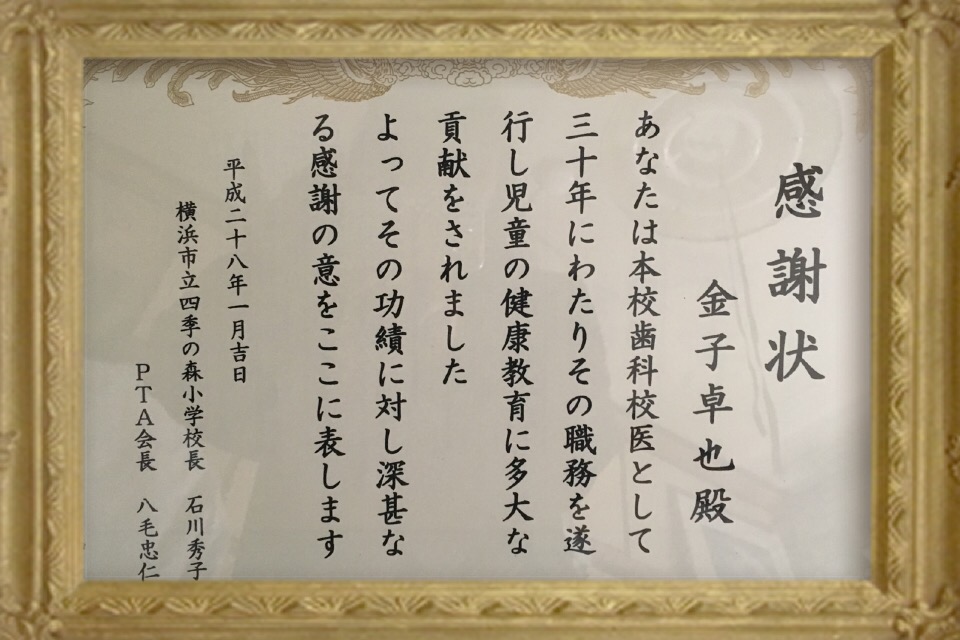 感謝状
金子卓也殿
あなたは本校歯科校医として
三十年にわたりその職務を遂
行し児童の健康教育に多大な
貢献をされました
よってその功績に対し深甚な
る感謝の意をここに表します
平成二十八年一月吉日
横浜市立四季の森小学校長 石川秀子
PTA会長 八毛忠仁